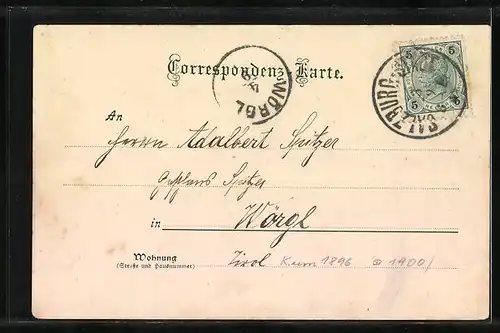 Correspondenz-Karte.
WÖRGL
SALZBURG
5 5
5 5
An
Herrn Adalbert Spitzer
Gasthaus Spitzer
in Wörgl
Wohnung
(Straße und Hausnummer)
Tirol Kum 1896
1900/